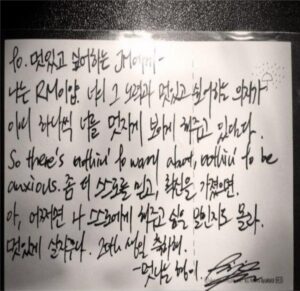 To. 멋있고 싶어하는 JM에게-
나는 RM이얌. 너의 그 노력과 멋있고 싶어하는 의지가
이미 하나씩 너를 멋지게 보이게 해주고 있단다.
So there's nothin' to worry about, nothin' to be
anxious. 좀 더 스스로를 믿고, 확신을 가졌으면.
아, 어쩌면 나 스스로에게 해주고 싶은 말인지도 몰라.
멋있게 살자구나. 그래 생일 축하해.
-멋나는 형이.